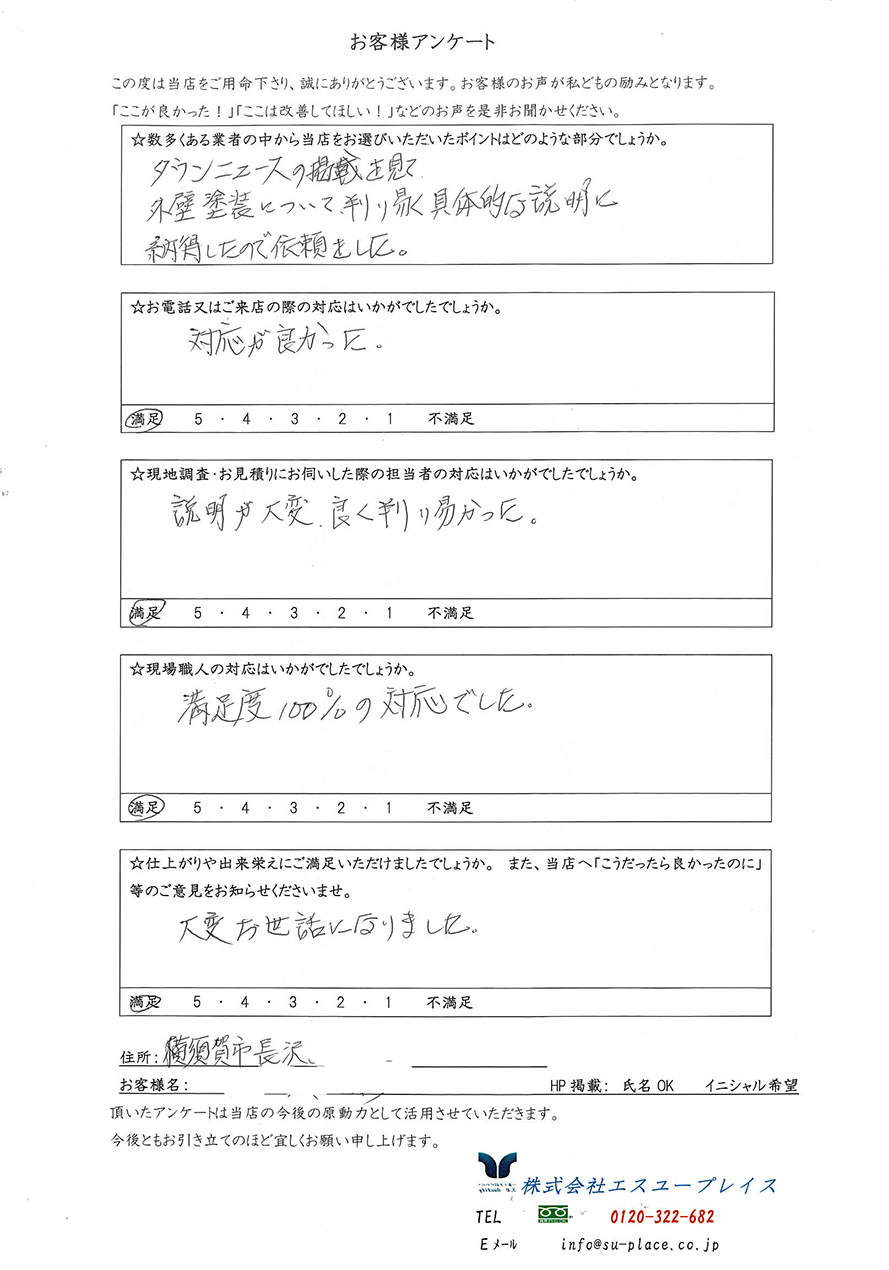 お客様アンケート
この度は当店をご用命下さり、誠にありがとうございます。お客様のお声が私どもの励みとなります。
「ここが良かった！」「ここは改善してほしい！」などのお声を是非お聞かせください。
☆数多くある業者の中から当店をお選びいただいたポイントはどのような部分でしょうか。
タウンニュースの掲載を見て
外壁塗装について、判り易く具体的な説明に
納得したので依頼をした。
☆お電話又はご来店の際の対応はいかがでしたでしょうか。
対応が良かった。
満足 5 ・ 4 ・ 3 ・ 2 ・ 1 不満足
☆現地調査・お見積りにお伺いした際の担当者の対応はいかがでしたでしょうか。
説明が大変、良く判り易かった。
満足 5 ・ 4 ・ 3 ・ 2 ・ 1 不満足
☆現場職人の対応はいかがでしたでしょうか。
満足度100%の対応でした。
満足 5 ・ 4 ・ 3 ・ 2 ・ 1 不満足
☆仕上がりや出来栄えにご満足いただけましたでしょうか。 また、当店へ「こうだったら良かったのに」
等のご意見をお知らせくださいませ。
大変お世話になりました。
満足 5 ・ 4 ・ 3 ・ 2 ・ 1 不満足
住所：横須賀市長沢、
お客様名： HP掲載： 氏名OK イニシャル希望
頂いたアンケートは当店の今後の原動力として活用させていただきます。
今後ともお引き立てのほど宜しくお願い申し上げます。
株式会社エスユープレイス
TEL 0120-322-682
Eメール info@su-place.co.jp